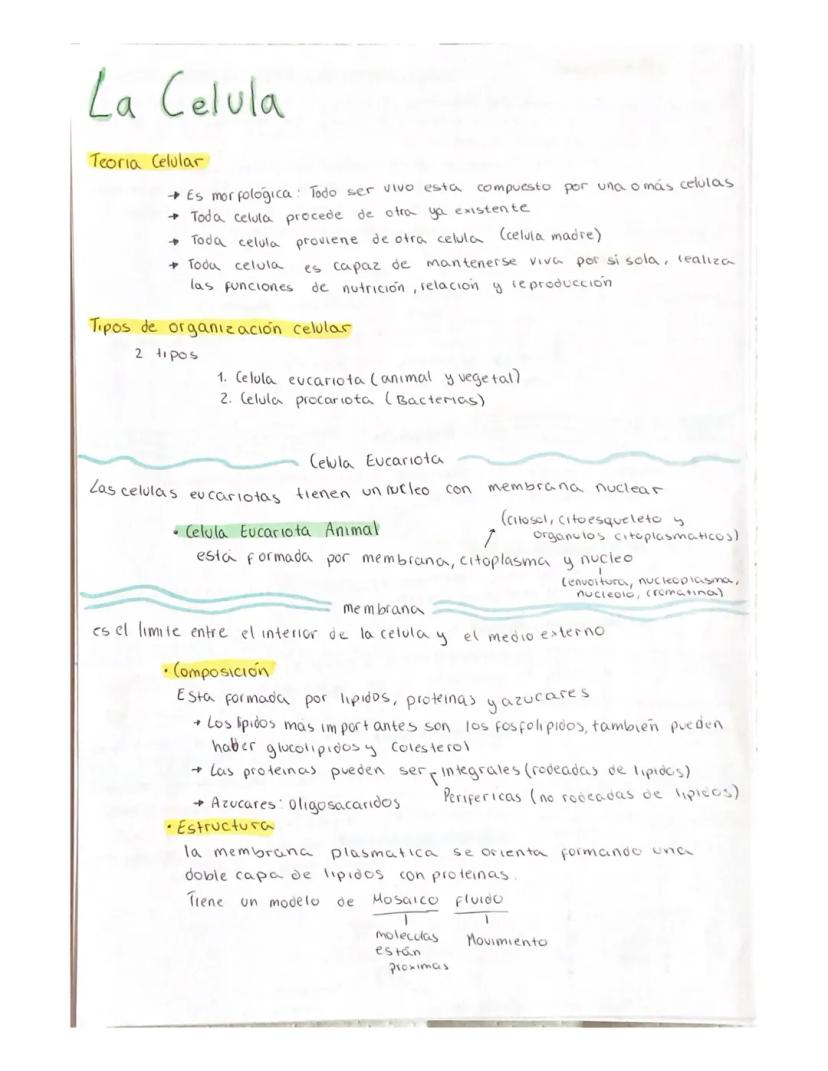 La Celula
Teoria Celular
→ Es morfológica: Todo ser vivo esta compuesto por una o más celulas
→ Toda celula procede de otra ya existente
→ Toda celula proviene de otra celula (celula madre)
→ Toda celula es capaz de mantenerse viva por si sola, realiza
las funciones de nutrición, relacion y reproducción
Tipos de organización celular
2 tipos
1. Celula eucariota (animal y vegetal)
2. Celula procariota (Bacterias)
Celula Eucariota
Las celulas eucariotas tienen un nucleo con membrana nuclear
• Celula Eucariota Animal
(citosol, citoesqueleto y
organulos citoplasmaticos)
está formada por membrana, citoplasma y nucleo
(envoltura, nucleoplasma,
nucleolo, cromatina)
membrana
es el limite entre el interior de la celula y el medio externo
• Composición
Esta formada por lipidos, proteinas y azucares
→ Los lipidos más importantes son los fosfolipidos, también pueden
haber glucolipidos y colesterol
→ Las proteinas pueden ser integrales (rodeadas de lipidos)
Perifericas (no rodeadas de lipidos)
→ Azucares: Oligosacaridos
• Estructura
la membrana plasmatica se orienta formando una
doble capa de lipidos con proteinas.
Tiene un modelo de Mosaico fluido
moleculas
están
proximas
Movimiento